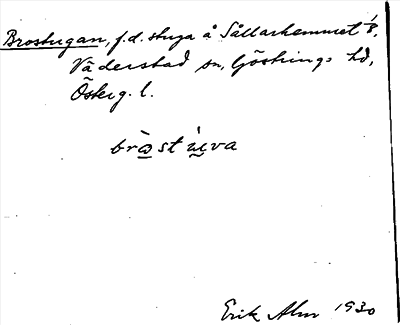 Brostugan, f.d. stuga å Sållarhemmet i
Väderstad sn, Göstrings hd,
Österg. l.
bròstúva
Erik Alm 1930